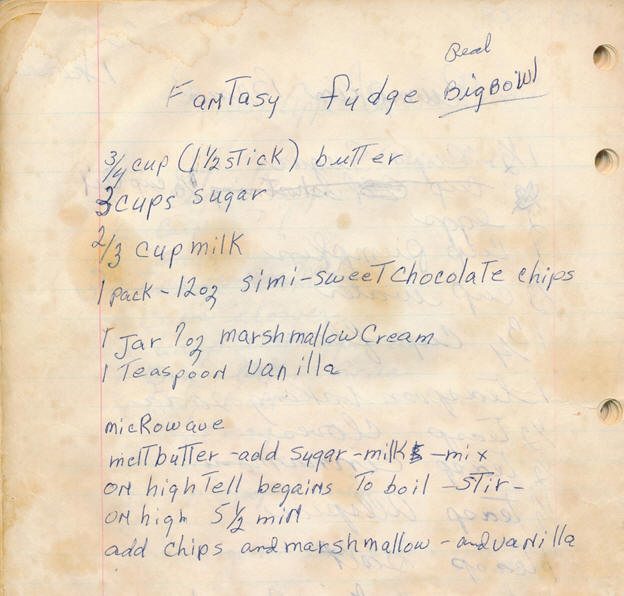 Real
Fantasy fudge BigBowl
3/4 cup (1 1/2 stick) butter
3 cups sugar
2/3 cup milk
1 pack - 12oz simi-sweet chocolate chips
1 Jar 7oz marshmallow Cream
1 Teaspoon Vanilla
micRowave
melt butter - add sugar - milk - mix
on high Tell begains To boil - STir -
on high 5 1/2 min
add chips and marshmallow - and vanilla